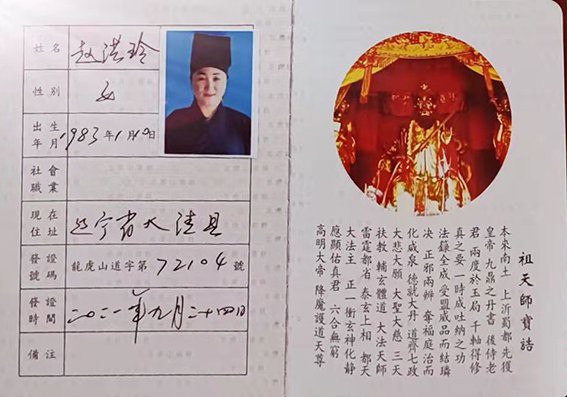 姓名 赵洪玲
性别 女
出生年月 1983年1月10日
社會職業
現在住址 辽宁省大洼县
發證號碼 龍虎山道字第72104號
發證時間 二〇二一年九月二十四日
備注
祖天師寶誥
本來南土 上泝蜀都 先復
皇帝 九鼎之丹書 後侍老
君 兩度於玉局 千軸得修
真之要 一時成吐納之功
法籙全成 受盟威品而結璘
决 正邪兩辨 奪福庭治而
化咸泉 德就大丹 道齊七政
大悲大願 大聖大慈 三天
扶教 輔玄體道 大法天師
雷霆都省 泰玄上相 都天
大法主 正一衝玄神化静
應顯佑真君 六合無窮
高明大帝 降魔護道天尊